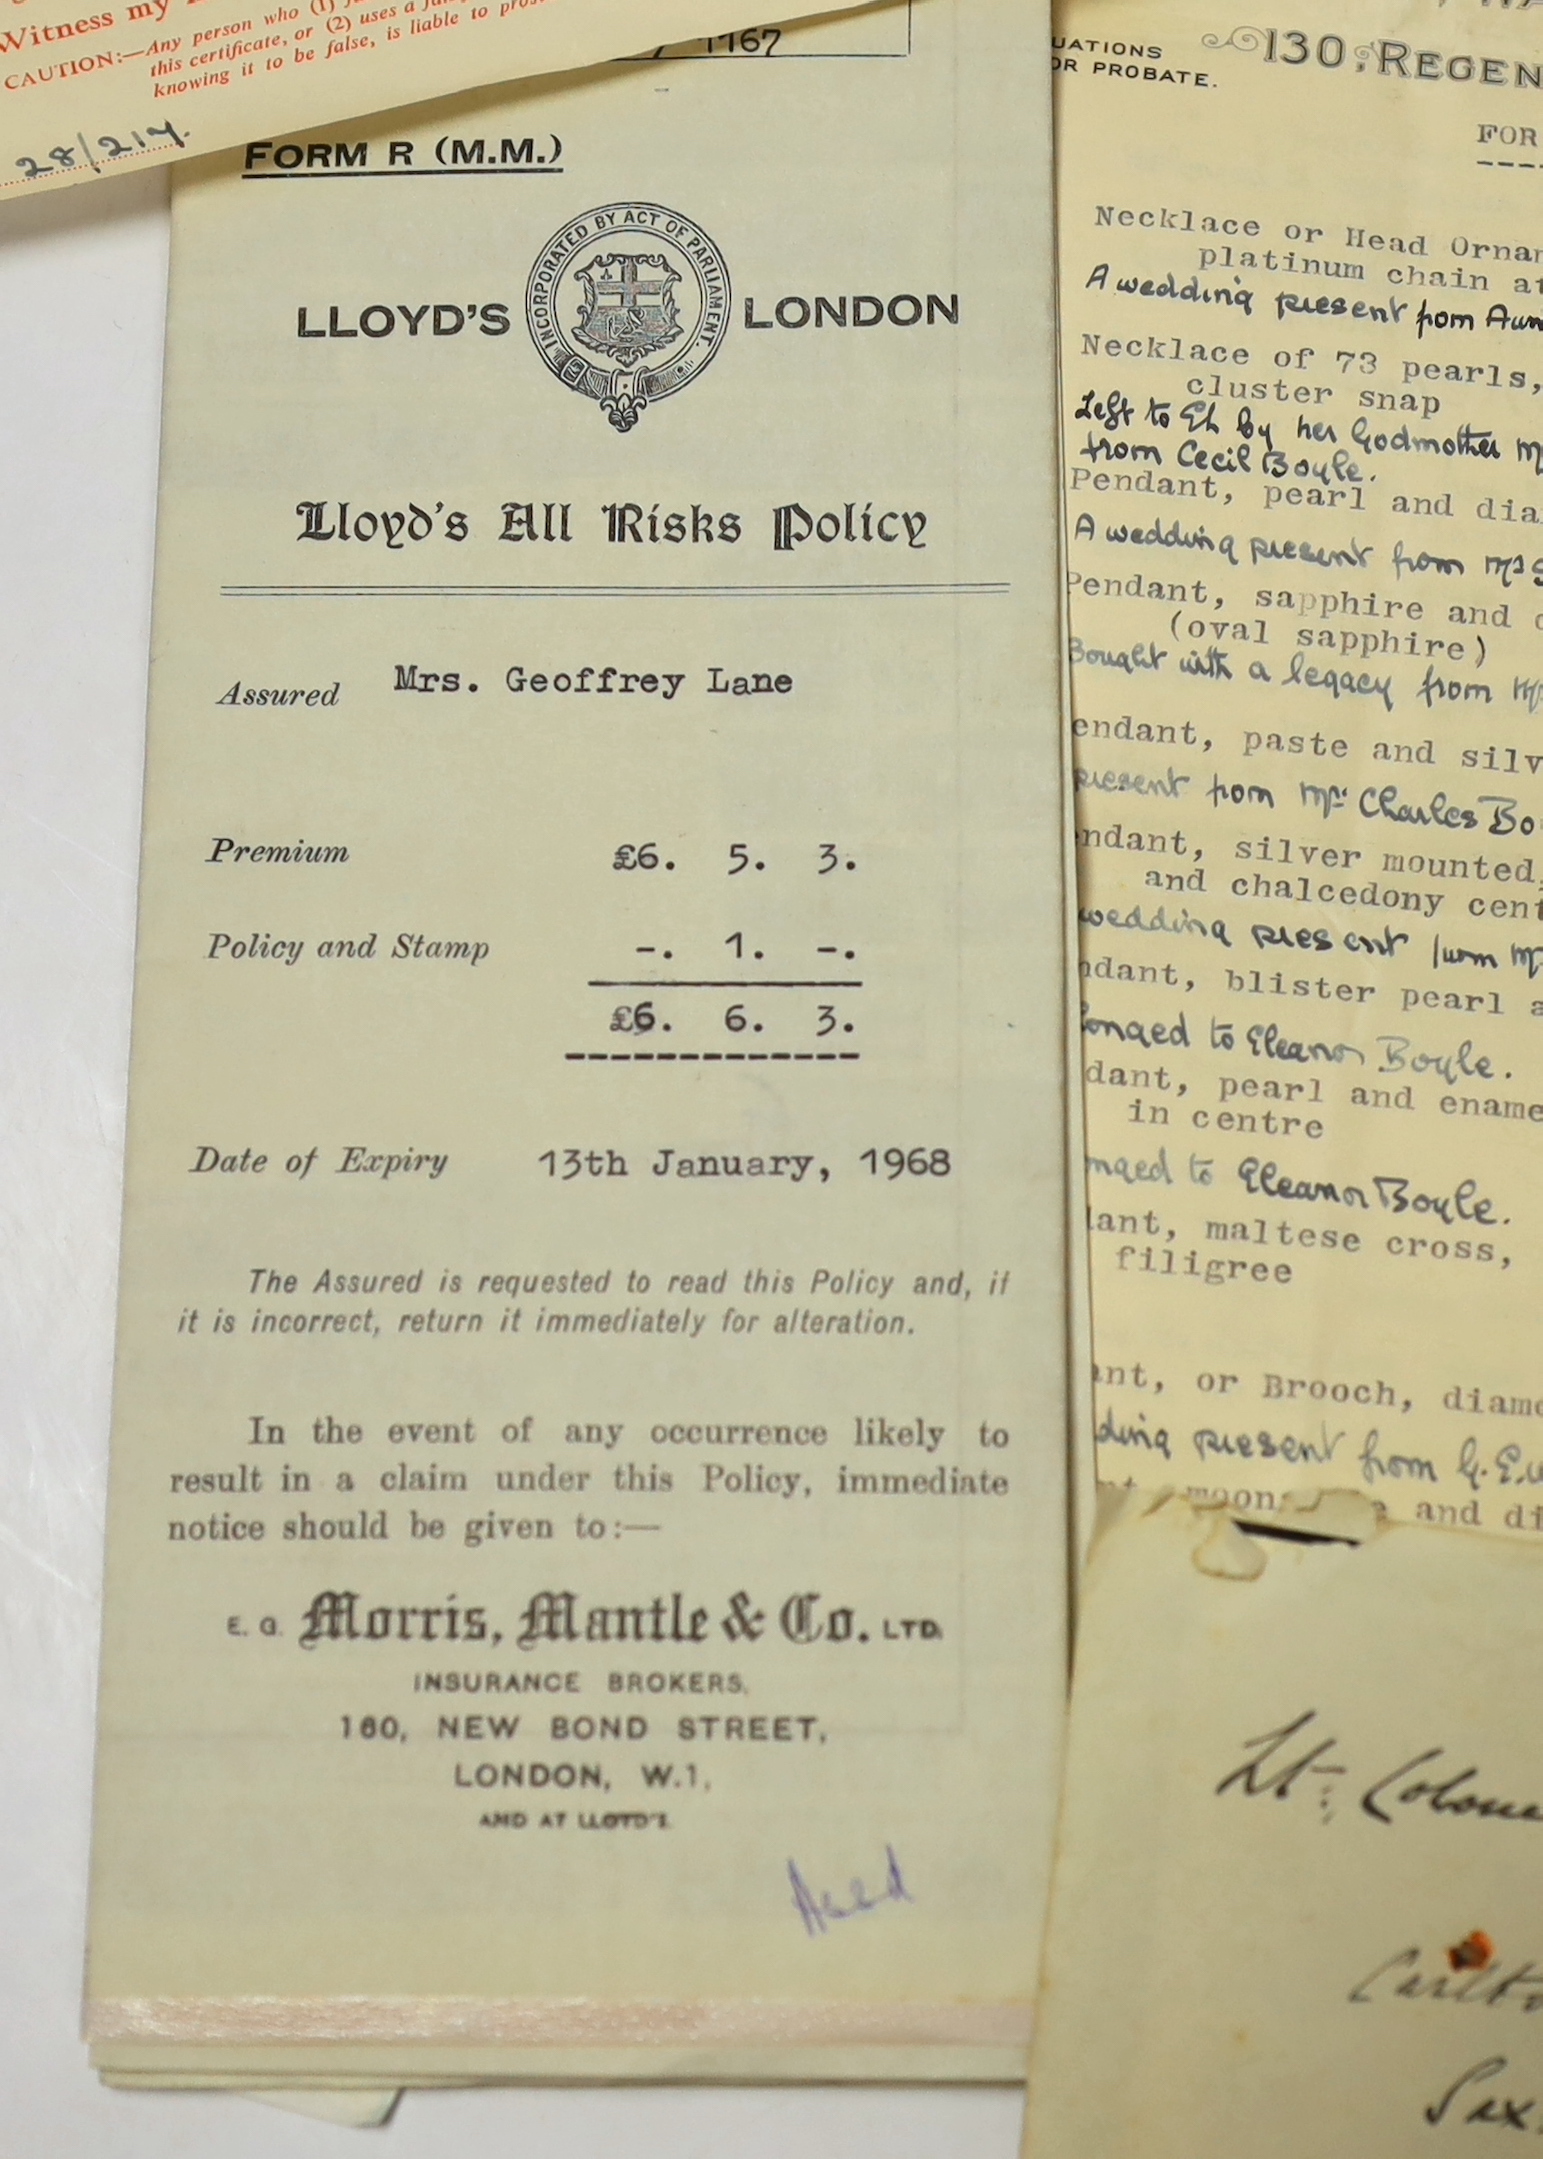 Witness my
CAUTION:—Any person who (1)
this certificate, or (2) uses a
knowing it to be false, is liable to
28/214.
1167
FORM R (M.M.)
INCORPORATED BY ACT OF PARLIAMENT.
LLOYD'S LONDON
Lloyd's All Risks Policy
Assured Mrs. Geoffrey Lane
Premium £6. 5. 3.
Policy and Stamp -. 1. -.
£6. 6. 3.
Date of Expiry 13th January, 1968
The Assured is requested to read this Policy and, if
it is incorrect, return it immediately for alteration.
In the event of any occurrence likely to
result in a claim under this Policy, immediate
notice should be given to:—
E. G. Morris, Mantle & Co. LTD.
INSURANCE BROKERS,
160, NEW BOND STREET,
LONDON, W.1,
AND AT LLOYD'S.
UATIONS
OR PROBATE.
130, REGEN
FOR
Necklace or Head Orna
platinum chain at
A wedding present from Aun
Necklace of 73 pearls,
cluster snap
Left to EL by her Godmother
from Cecil Boyle.
Pendant, pearl and dia
A wedding present from Mrs
Pendant, sapphire and
(oval sapphire)
Bought with a legacy from
endant, paste and silv
present from Mrs Charles Bo
ndant, silver mounted,
and chalcedony cent
wedding present from
ndant, blister pearl a
longed to Eleanor Boyle.
dant, pearl and ename
in centre
nged to Eleanor Boyle.
lant, maltese cross,
filigree
ant, or Brooch, diamo
dding present from G.E.
and di
Lt. Colone
Carlto
Sex